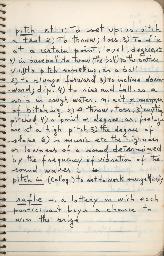 pitch vt. 1. To set up, as pitch
a tent 2) To throw; toss 3) To fix
at a certain point, level, degree, etc.
4) in baseball to throw (the ball) to the batter
vi. 1) to pitch something, as a ball
2) to plunge forward 3) to incline down-
wardly; dip 4) to rise and fall, as a
ship in rough water. n. act or manner
of pitching 2) a throw; toss 3) anything
pitched 4) a point or degree as, feelings
are at a high pitch 5) the degree of
slope 6) in music etc the highness
or lowness of a sound determined
by the frequency of vibration of the
sound waves
pitch in (Colloq.) to set to work energetically
raffle n. a lottery in which each
participant buys a chance to
win the prize